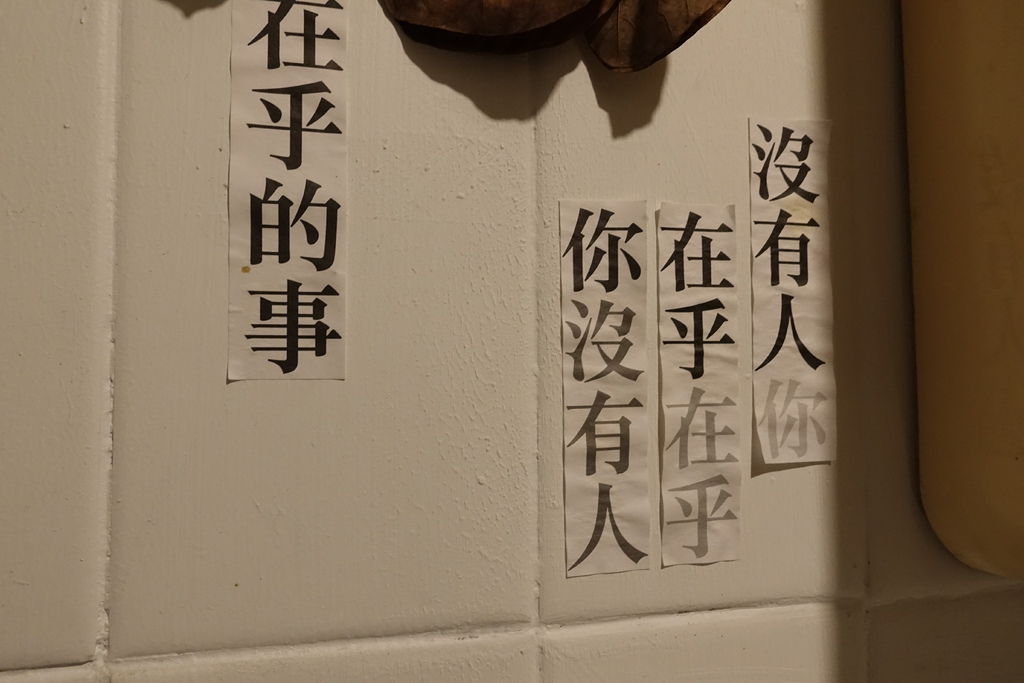 沒有人你
在乎在乎
你沒有人
在乎的事